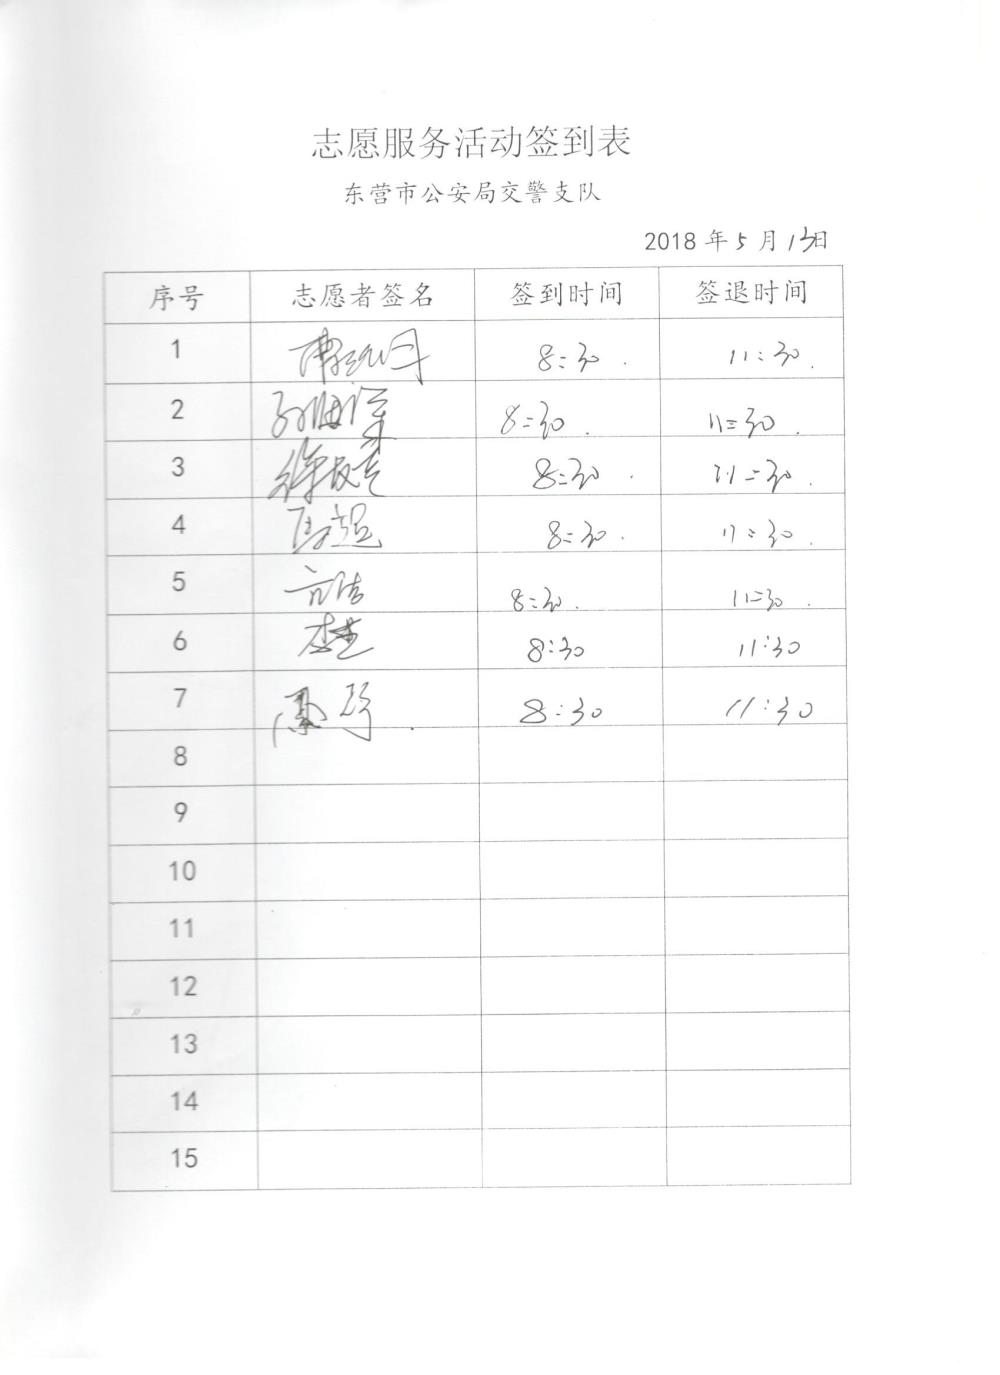 志愿服务活动签到表
东营市公安局交警支队
2018 年 5 月 13日
序号 志愿者签名 签到时间 签退时间
1 8:30 11:30
2 8:30 11:30
3 8:30 11:30
4 马超 8:30 11:30
5 8:30 11:30
6 8:30 11:30
7 8:30 11:30
8
9
10
11
12
13
14
15